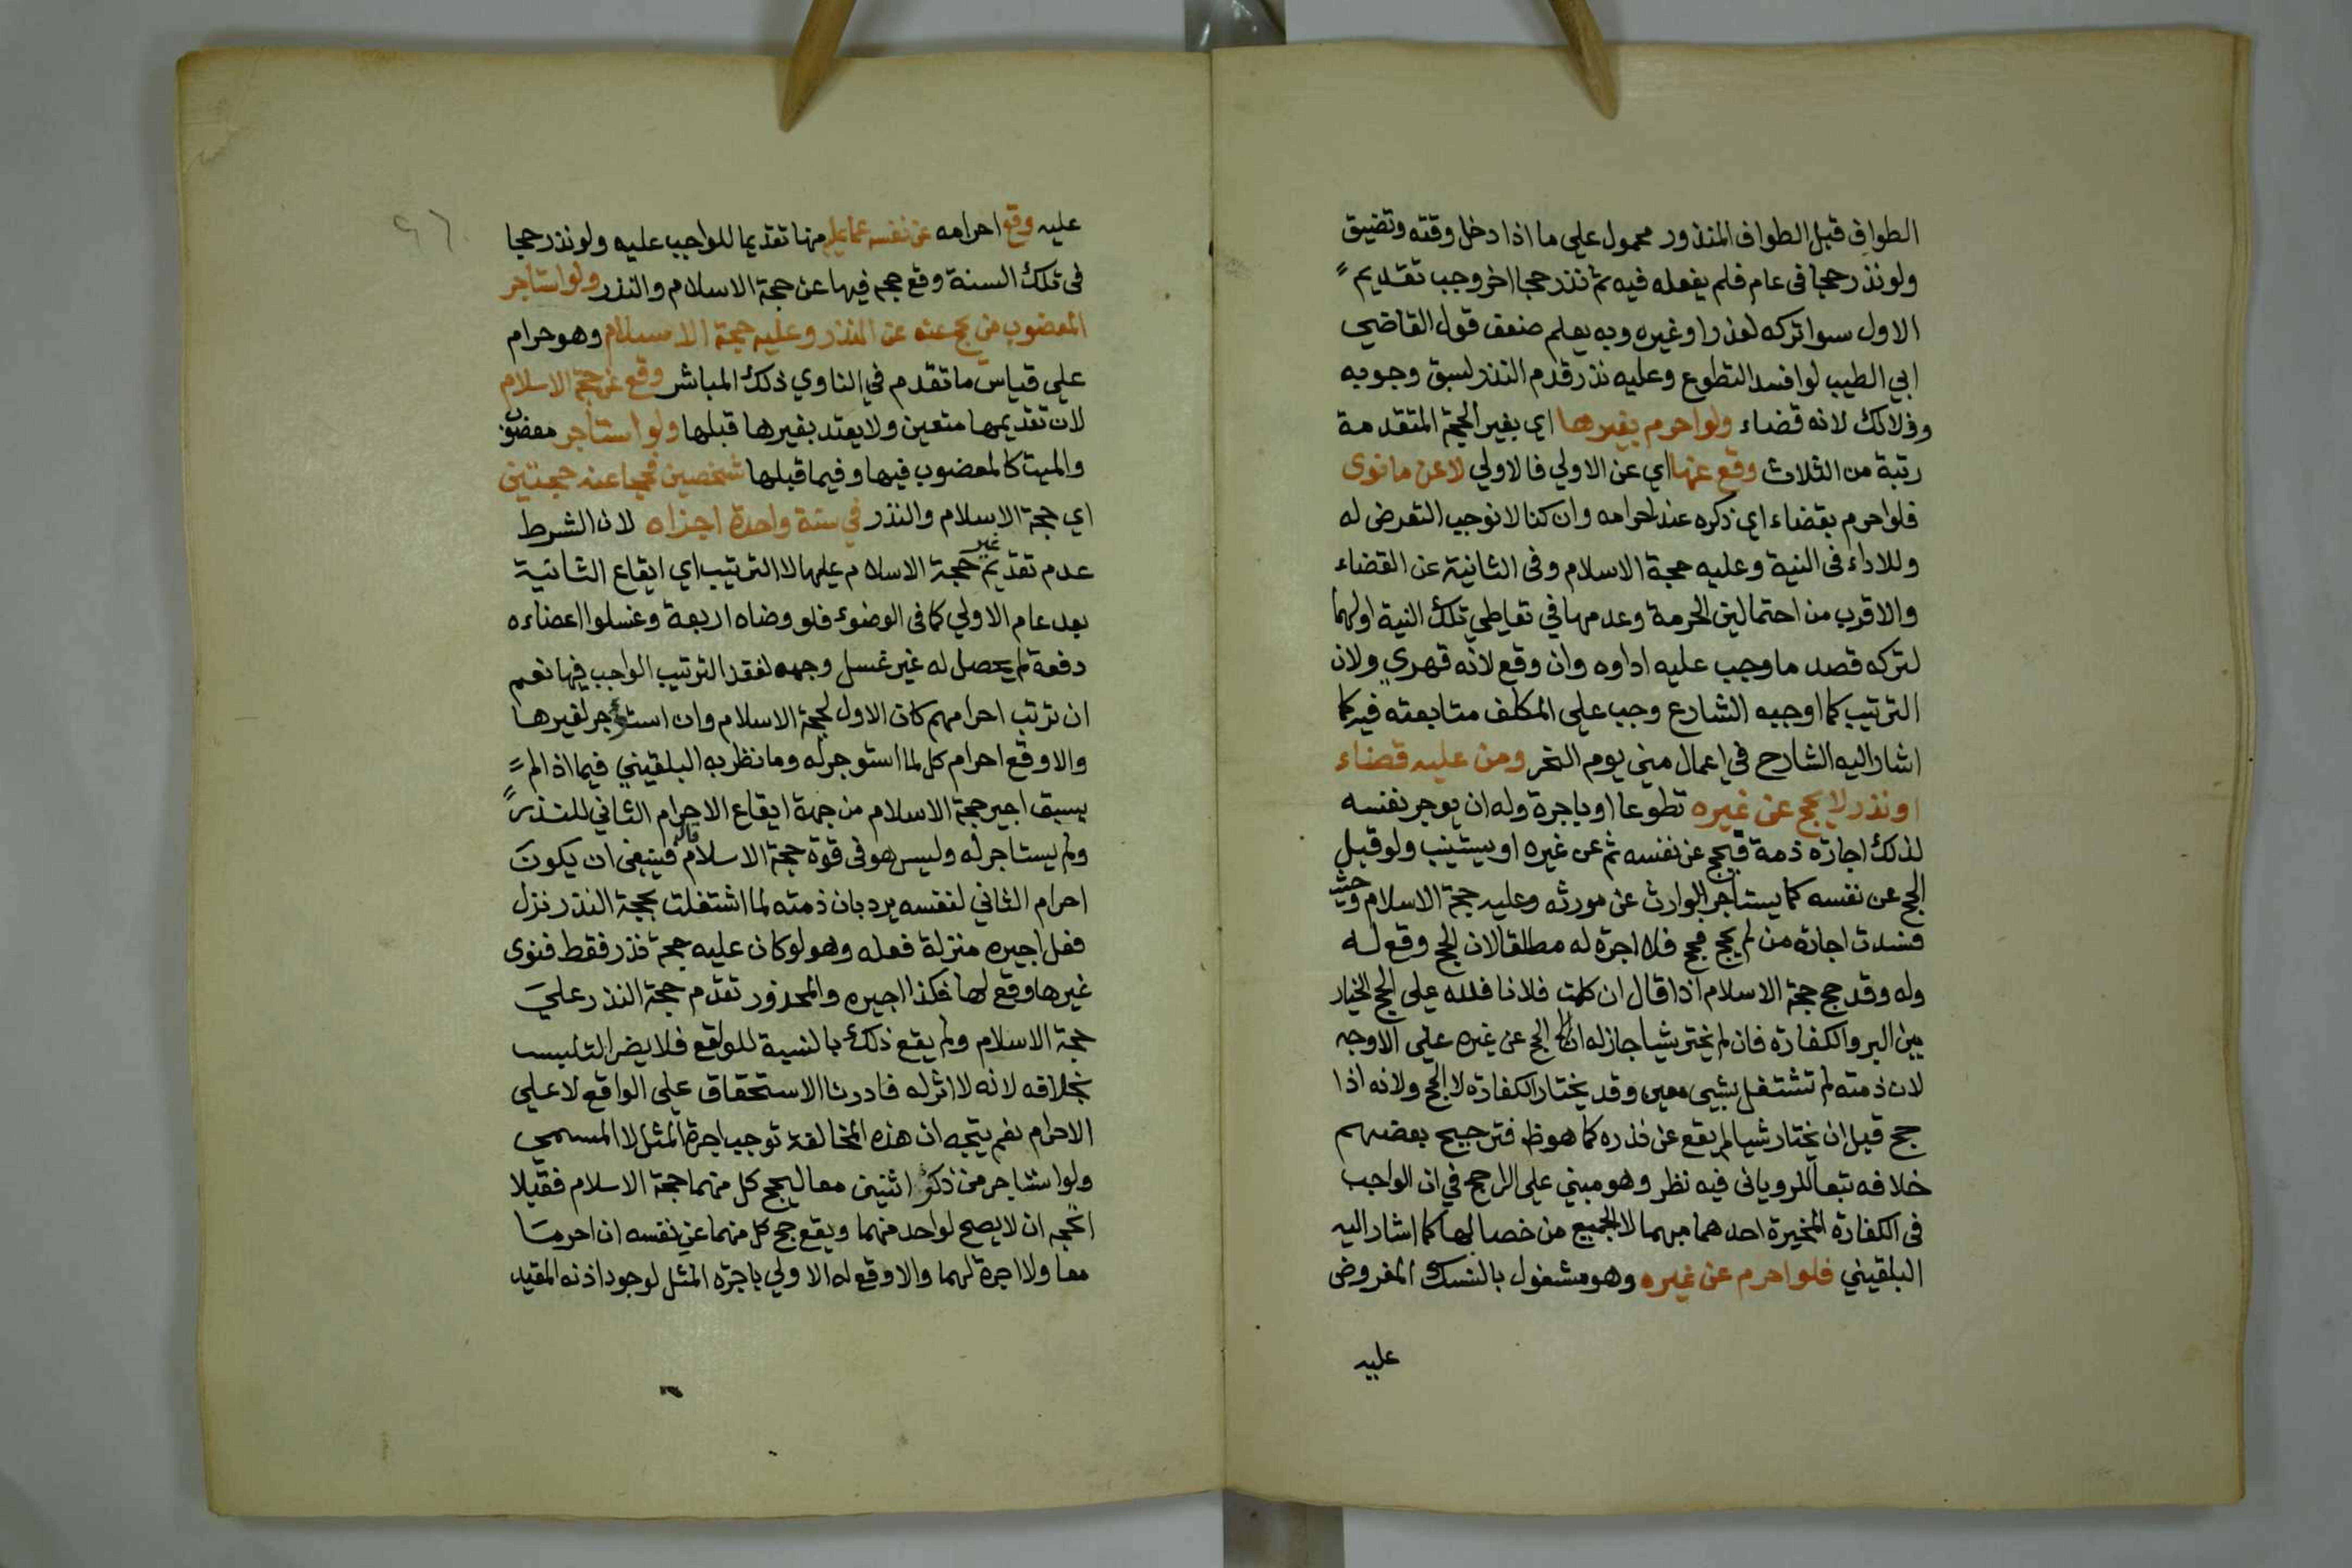 الطواف قبل الطواف المنذور محمول على ما اذا دخل وقته وتضيق
ولو نذر حجا فى عام فلم يفعله فيه ثم نذر حجا اخر وجب تقديم
الاول سوا تركه لعذر او غيره وبه يعلم ضعف قول القاضي
ابي الطيب لو افسد التطوع وعليه نذر قدم النذر لسبق وجوبه
وذلك لانه قضاء ولو احرم بغيرها اي بغير الحجة المتقدمة
رتبة من الثلاث وقع عنها اي عن الاولي فالاولي لا عن ما نوى
فلو احرم بقضاء اي ذكره عند احرامه وان كنا لا نوجب التعرض له
وللاداء فى النية وعليه حجة الاسلام وفى الثانية عن القضاء
والاقرب من احتمالين الحرمة وعدمها في تعاطي تلك النية اولهما
لتركه قصد ما وجب عليه اداوه وان وقع لانه قهري ولان
الترتيب كما اوجبه الشارع وجب على المكلف متابعته فيه كما
اشار اليه الشارح في اعمال منى يوم النحر ومن عليه قضاء
او نذر لا يحج عن غيره تطوعا او باجرة وله ان يوجر نفسه
لذلك اجارة ذمة فيحج عن نفسه ثم عن غيره او يستنيب ولو قبل
الحج عن نفسه كما يستاجر الوارث عن مورثه وعليه حجة الاسلام وحيث
فسدت اجارة من لم يحج فحج فلا اجرة له مطلقا لان الحج وقع له
وله وقد حج حجة الاسلام اذا قال ان كلمت فلانا فلله على الحج الخيار
بين البر والكفارة فان لم يختر شيا جاز له الحج عن غيره على الاوجه
لان ذمته لم تشتغل بشيى معين وقد يختار الكفارة لا الحج ولانه اذا
حج قبل ان يختار شيا لم يقع عن نذره كما هو ظ فترجيح بعضهم
خلافه تبعا للرويانى فيه نظر وهو مبني على الراجح في ان الواجب
فى الكفارة المخيرة احدهما مبهما لا الجميع من خصالها كما اشار اليه
البلقيني فلو احرم عن غيره وهو مشغول بالنسك المفروض
عليه
عليه وقع احرامه عن نفسه عما عليه منها تقديما للواجب عليه ولو نذر حجا
فى تلك السنة وقع حجه فيها عن حجة الاسلام والنذر ولو استاجر
المعضوب من يحج عنه عن النذر وعليه حجة الاسلام وهو حرام
على قياس ما تقدم في الناوي ذلك المباشر وقع عن حجة الاسلام
لان تقديمها متعين ولا يعتد بغيرها قبلها ولو استاجر معضوب
والميت كالمعضوب فيها وفيما قبلها شخصين فحجا عنه حجتين
اي حجة الاسلام والنذر في سنة واحدة اجزاه لان الشرط
عدم تقديم غير حجة الاسلام عليها لا الترتيب اي ايقاع الثانية
بعد عام الاولي كما فى الوضوء فلو وضاه اربعة وغسلوا اعضاءه
دفعة لم يحصل له غير غسل وجهه لفقد الترتيب الواجب فيها نعم
ان ترتب احرامهم كان الاول لحجة الاسلام وان استؤجر لغيرها
والا وقع احرام كل لما استوجر له وما نظر به البلقيني فيما اذا لم
يسبق اجير حجة الاسلام من جهة ايقاع الاحرام الثاني للنذر
ولم يستاجر له وليس هو فى قوة حجة الاسلام قال فينبغى ان يكون
احرام الثاني لنفسه يرد بان ذمته لما اشتغلت بحجة النذر نزل
فعل اجيره منزلة فعله وهو لو كان عليه حجة نذر فقط فنوى
غيرها وقع لها فكذا اجيره والمحذور تقدم حجة النذر على
حجة الاسلام ولم يقع ذلك بالنسبة للواقع فلا يضر التلبيس
بخلافه لانه لا اثر له فادرنا الاستحقاق على الواقع لا على
الاحرام نعم يتجه ان هذه المخالفة توجب اجرة المثل لا المسمى
ولو استاجر من ذكر اثنين معا ليحج كل منهما حجة الاسلام فقيلا
اتجه ان لا يصح لواحد منهما ويقع حج كل منهما عن نفسه ان احرما
معا ولا اجرة لهما والا وقع له الاولي باجرة المثل لوجود اذنه المقيد